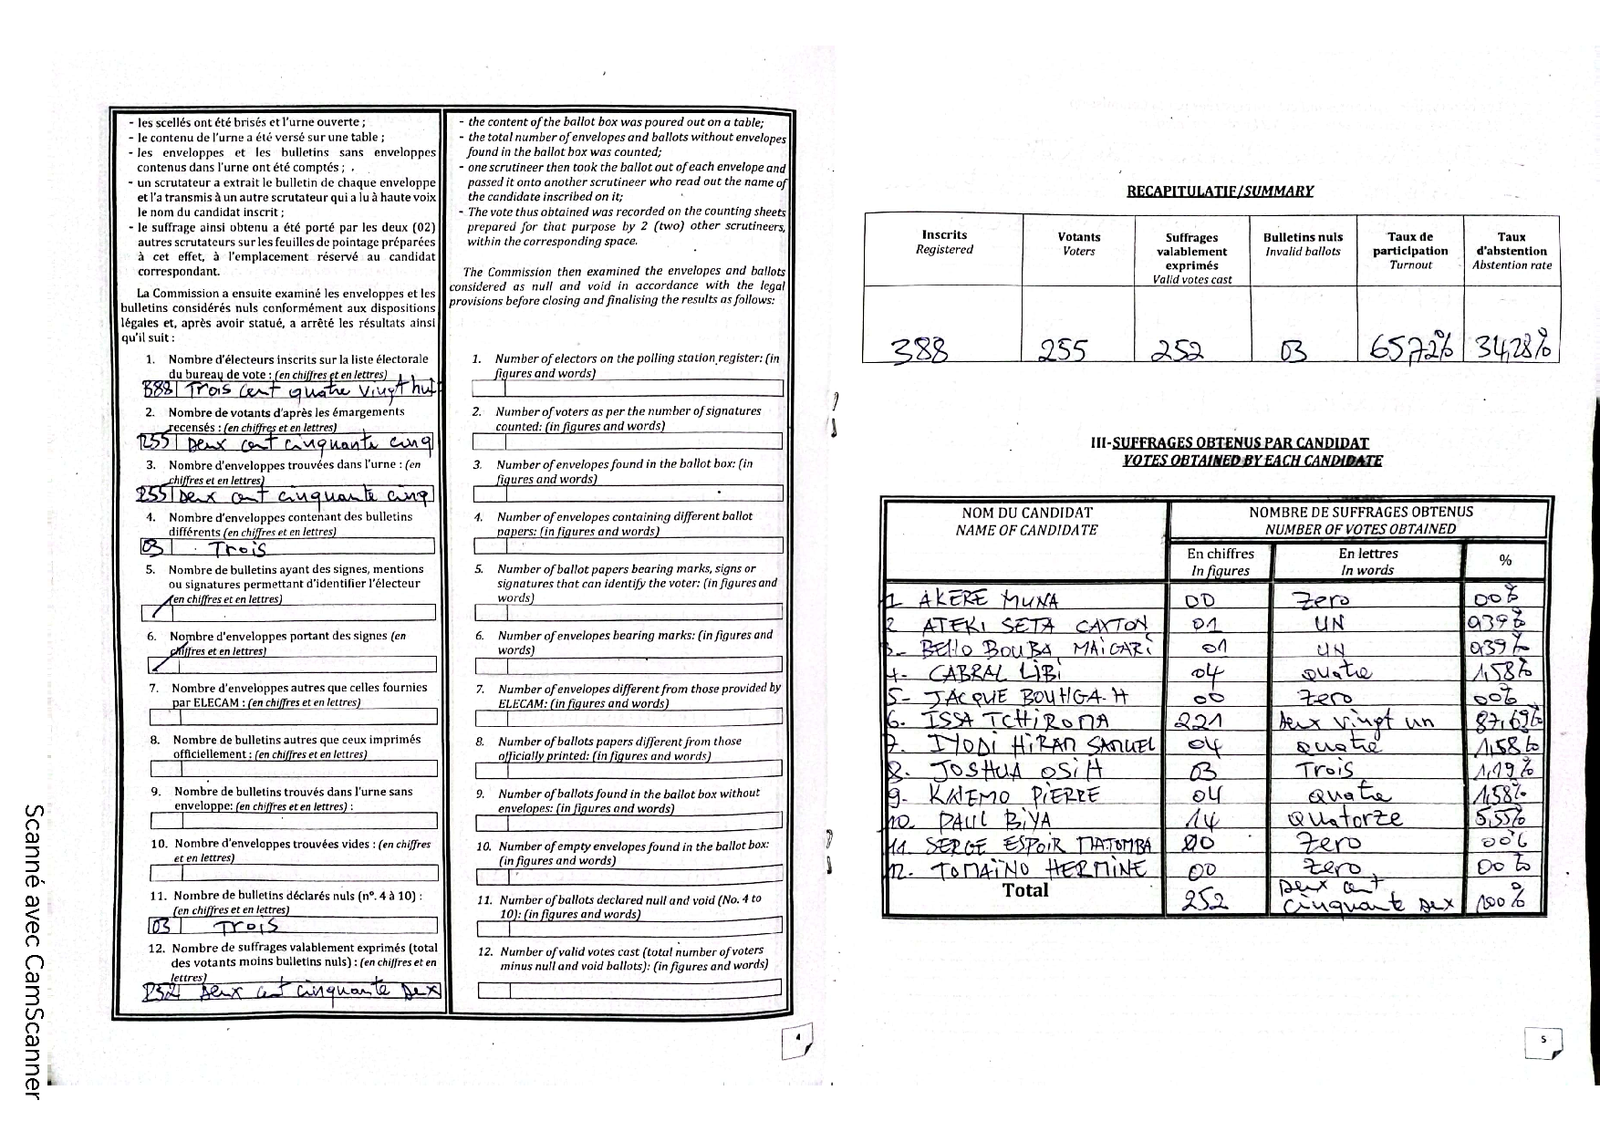 - les scellés ont été brisés et l'urne ouverte ;
- le contenu de l'urne a été versé sur une table ;
- les enveloppes et les bulletins sans enveloppes
contenus dans l'urne ont été comptés ;
- un scrutateur a extrait le bulletin de chaque enveloppe
et l'a transmis à un autre scrutateur qui a lu à haute voix
le nom du candidat inscrit ;
- le suffrage ainsi obtenu a été porté par les deux (02)
autres scrutateurs sur les feuilles de pointage préparées
à cet effet, à l'emplacement réservé au candidat
correspondant.
La Commission a ensuite examiné les enveloppes et les
bulletins considérés nuls conformément aux dispositions
légales et, après avoir statué, a arrêté les résultats ainsi
qu'il suit :
1. Nombre d'électeurs inscrits sur la liste électorale
du bureau de vote : (en chiffres et en lettres)
388 Trois cent quatre vingt huit
2. Nombre de votants d'après les émargements
recensés : (en chiffres et en lettres)
255 Deux cent cinquante cinq
3. Nombre d'enveloppes trouvées dans l'urne : (en
chiffres et en lettres)
255 Deux cent cinquante cinq
4. Nombre d'enveloppes contenant des bulletins
différents (en chiffres et en lettres)
03 Trois
5. Nombre de bulletins ayant des signes, mentions
ou signatures permettant d'identifier l'électeur
(en chiffres et en lettres)
/
6. Nombre d'enveloppes portant des signes (en
chiffres et en lettres)
/
7. Nombre d'enveloppes autres que celles fournies
par ELECAM : (en chiffres et en lettres)
8. Nombre de bulletins autres que ceux imprimés
officiellement : (en chiffres et en lettres)
9. Nombre de bulletins trouvés dans l'urne sans
enveloppe: (en chiffres et en lettres) :
10. Nombre d'enveloppes trouvées vides : (en chiffres
et en lettres)
11. Nombre de bulletins déclarés nuls (n°. 4 à 10) :
(en chiffres et en lettres)
03 Trois
12. Nombre de suffrages valablement exprimés (total
des votants moins bulletins nuls) : (en chiffres et en
lettres)
252 Deux cent cinquante Dex
- the content of the ballot box was poured out on a table;
- the total number of envelopes and ballots without envelopes
found in the ballot box was counted;
- one scrutineer then took the ballot out of each envelope and
passed it onto another scrutineer who read out the name of
the candidate inscribed on it;
- The vote thus obtained was recorded on the counting sheets
prepared for that purpose by 2 (two) other scrutineers,
within the corresponding space.
The Commission then examined the envelopes and ballots
considered as null and void in accordance with the legal
provisions before closing and finalising the results as follows:
1. Number of electors on the polling station register: (in
figures and words)
2. Number of voters as per the number of signatures
counted: (in figures and words)
3. Number of envelopes found in the ballot box: (in
figures and words)
4. Number of envelopes containing different ballot
papers: (in figures and words)
5. Number of ballot papers bearing marks, signs or
signatures that can identify the voter: (in figures and
words)
6. Number of envelopes bearing marks: (in figures and
words)
7. Number of envelopes different from those provided by
ELECAM: (in figures and words)
8. Number of ballots papers different from those
officially printed: (in figures and words)
9. Number of ballots found in the ballot box without
envelopes: (in figures and words)
10. Number of empty envelopes found in the ballot box:
(in figures and words)
11. Number of ballots declared null and void (No. 4 to
10): (in figures and words)
12. Number of valid votes cast (total number of voters
minus null and void ballots): (in figures and words)
4
RECAPITULATIF/SUMMARY
Inscrits Registered
Votants Voters
Suffrages valablement exprimés Valid votes cast
Bulletins nuls Invalid ballots
Taux de participation Turnout
Taux d'abstention Abstention rate
388 255 252 03 65,72% 34,28%
III-SUFFRAGES OBTENUS PAR CANDIDAT
VOTES OBTAINED BY EACH CANDIDATE
NOM DU CANDIDAT
NAME OF CANDIDATE
NOMBRE DE SUFFRAGES OBTENUS
NUMBER OF VOTES OBTAINED
En chiffres In figures
En lettres In words
%
1 AKERE MUNA 00 Zero 00%
2 ATEKI SETA CAXTON 01 UN 0,39%
3- BELLO BOUBA MAIGARI 01 UN 0,39%
4- CABRAL LIBI 04 quatre 1,58%
5- JACQUE BOUHGA-H 00 Zero 00%
6. ISSA TCHIROMA 221 Deux vingt un 87,69%
7. IYODI HIRAM SAMUEL 04 quatre 1,58%
8. JOSHUA OSIH 03 Trois 1,19%
9- KWEMO PIERRE 04 quatre 1,58%
10. PAUL BIYA 14 QUATORZE 5,55%
11. SERGE ESPOIR MATOMBA 00 Zero 00%
12. TOMAÏNO HERMINE 00 Zero 00%
Total 252 Deux cent cinquante Dex 100%
5
Scanné avec CamScanner